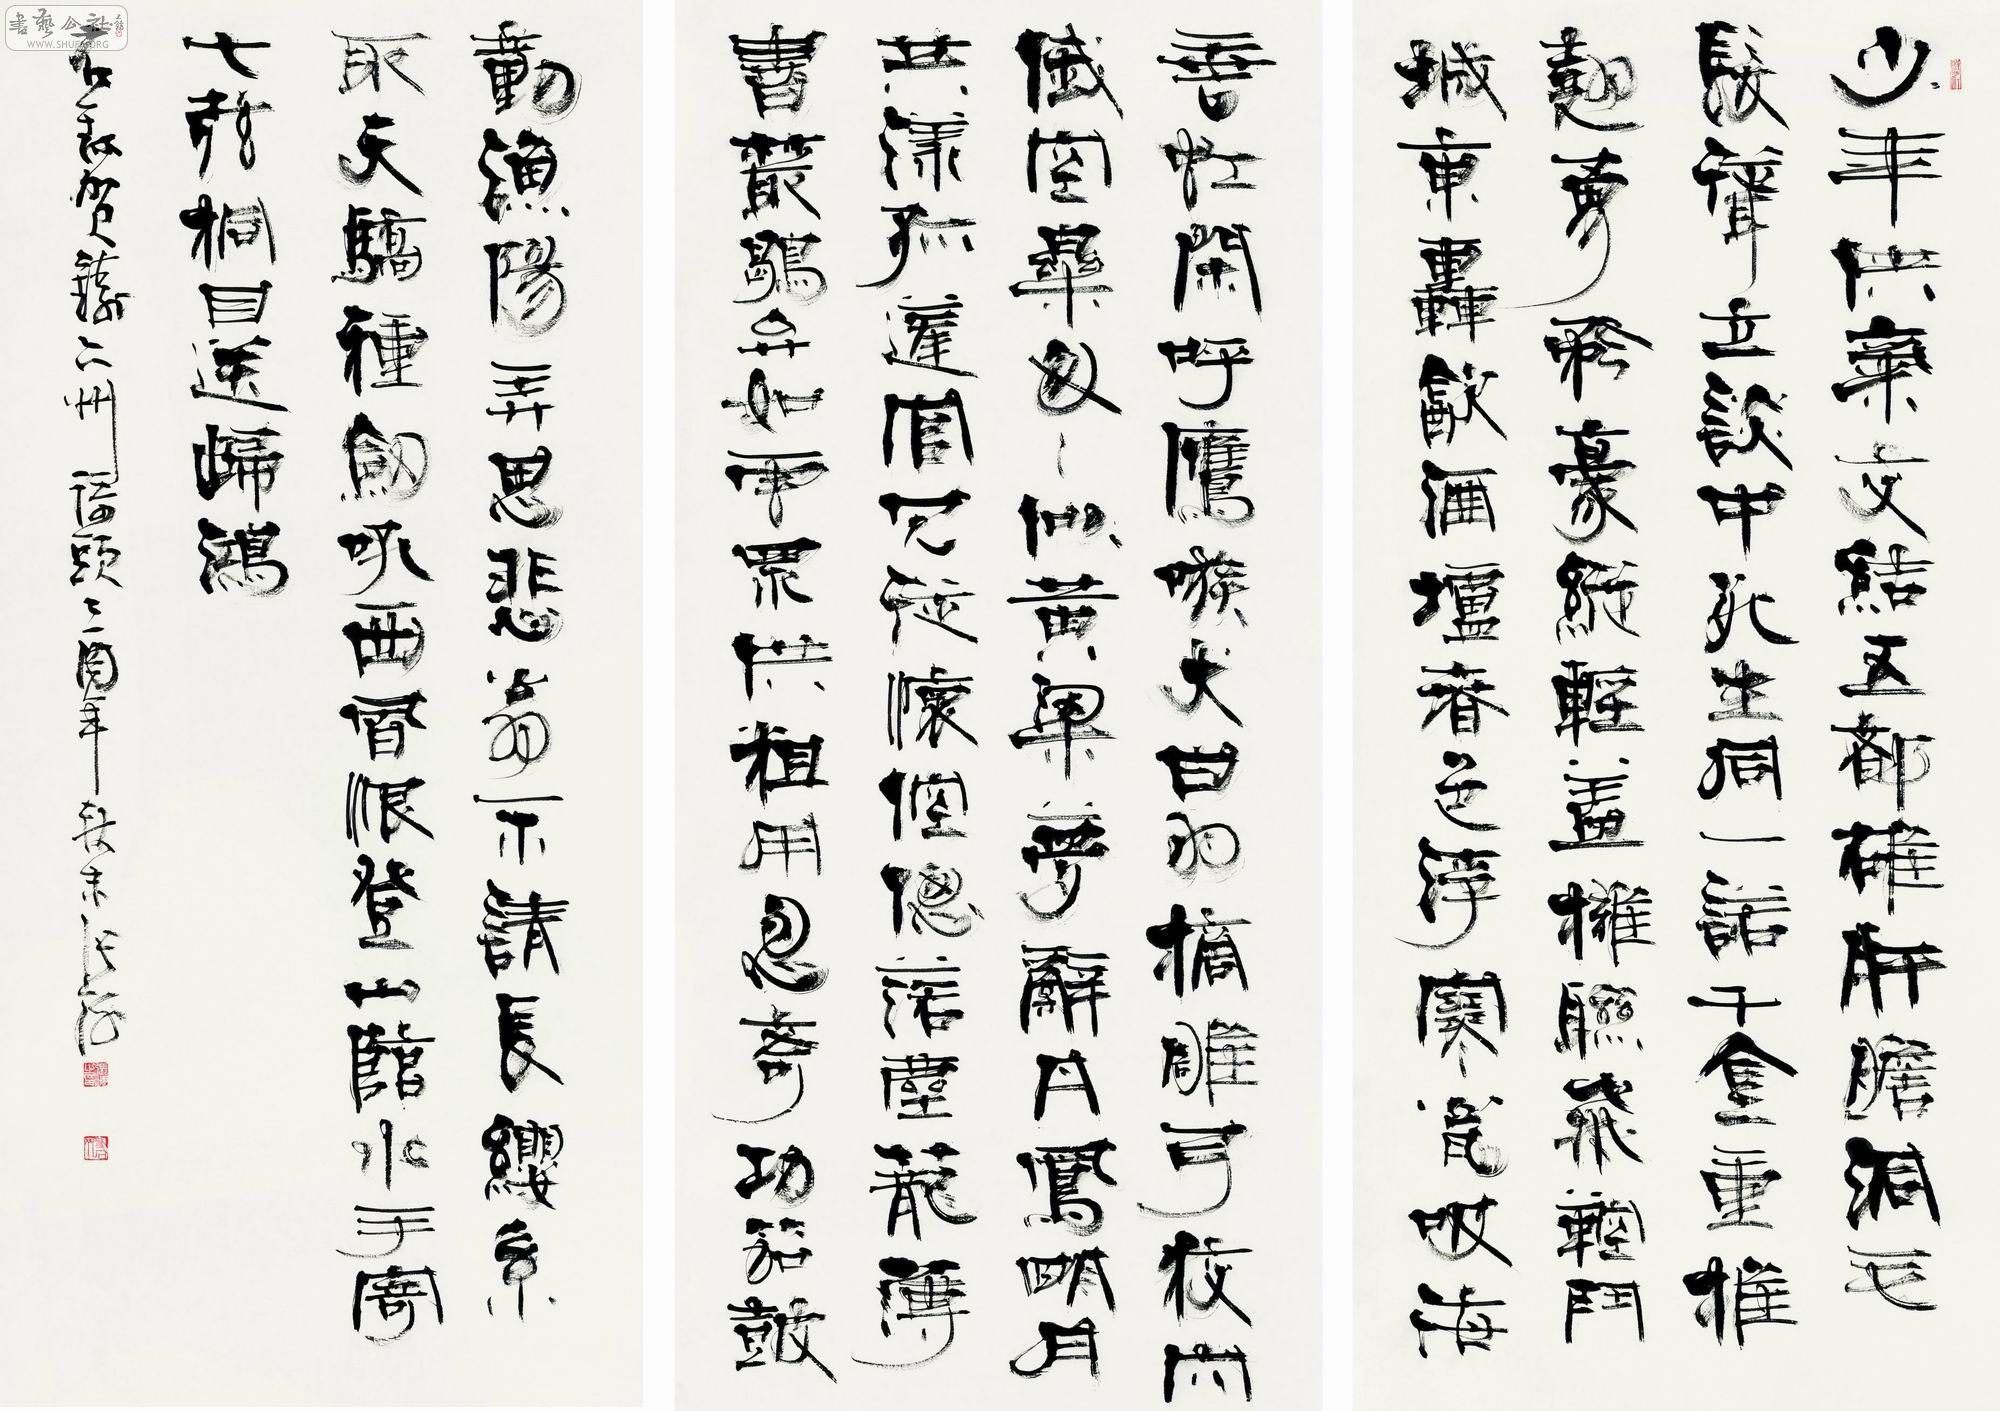 少年俠氣交結五都雄肝膽洞毛
髮聳立談中死生同一諾千金重推
翹勇矜豪縱輕蓋擁聯飛鞚鬥
城東轟飲酒壚春色浮寒甕吸海
垂虹閑呼鷹嗾犬白羽摘雕弓狡穴
俄空樂匆匆似黃粱夢辭丹鳳明月
共漾孤蓬官冗從懷倥傯落塵籠簿
書叢鶡弁如雲眾供粗用忽奇功笳鼓
動漁陽弄思悲翁不請長纓系
取天驕種劍吼西風恨登山臨水手寄
七弦桐目送歸鴻
右錄賀鑄六州謌頭乙酉年癸未張
書藝公社
WWW.SHUFA.ORG